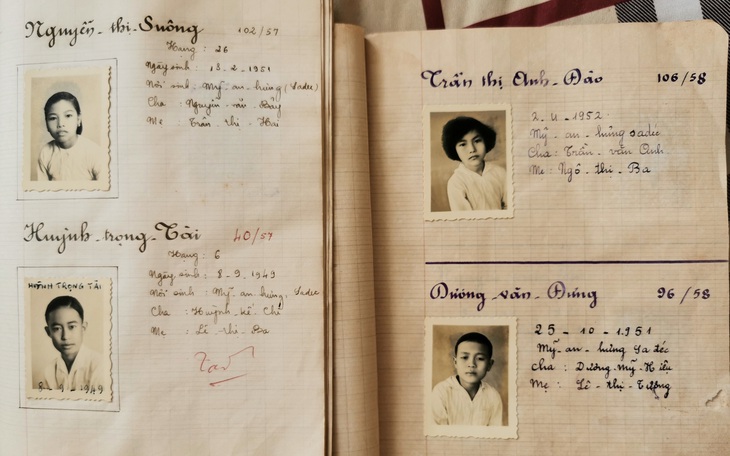 Nguyễn - thị - Suông 102/57
Hạng : 26
Ngày sinh : 18 - 2 - 1951
Nơi sinh : Mỹ - an - hưng (Sadec)
Cha : Nguyễn - văn - Bảy
Mẹ : Trần - thị - Hai
Huỳnh - trọng - Tài 40/57
Hạng : 6
Ngày sinh : 8 - 9 - 1949
Nơi sinh : Mỹ - an - hưng, Sadec
Cha : Huỳnh - kế - Chi
Mẹ : Lê - thị - Ba
HUỲNH TRỌNG TÀI
8 - 9 - 1949
Trần thị Anh - Đào 106/58
2 - 4 - 1952
Mỹ - an - hưng sadéc
Cha : Trần - văn - Anh
Mẹ : Ngô - thị - Ba
Dương - văn - Đúng 96/58
25 - 10 - 1951
Mỹ - an - hưng Sa đéc
Cha : Dương - Mỹ - Hiệu
Mẹ : Lê - thị - Tường